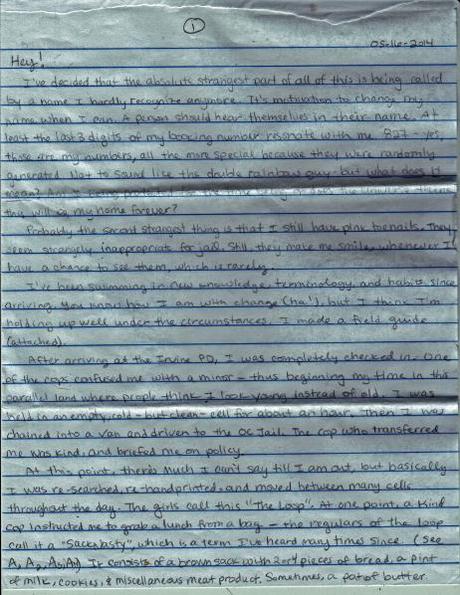 1
05-16-2014
Hey!
I've decided that the absolute strangest part of all of this is being called
by a name I hardly recognize anymore. It's motivation to change my
name when I can. A person should hear themselves in their name. At
least the last 3 digits of my booking number resonate with me. 827 - yes,
those are my numbers, all the more special because they were randomly
generated. Not to sound like the double rainbow guy - but what does it
mean?
this will be my home forever?
Probably the second strangest thing is that I still have pink toenails. They
seem strangely inappropriate for jail. Still, they make me smile, whenever I
have a chance to see them, which is rarely.
I've been swimming in new knowledge, terminology, and habits since
arriving. You know how I am with change (ha!), but I think I'm
holding up well under the circumstances. I made a field guide
(attached).
After arriving at the Irvine PD, I was completely checked in. One
of the cops confused me with a minor - thus beginning my time in this
parallel land where people think I look young instead of old. I was
held in an empty, cold - but clean - cell for about an hour. Then I was
chained into a van and driven to the OC Jail. The cop who transferred
me was kind, and briefed me on policy.
At this point, there's much I can't say till I am out, but basically
I was re-searched, re-handprinted, and moved between many cells
throughout the day. The girls call this "The Loop". At one point, a kind
cop instructed me to grab a lunch from a bag - the regulars of the loop
call it a "Sacknasty", which is a term I've heard many times since. (See
It consists of a brown sack with 2 or 4 pieces of bread, a pint
of milk, cookies, & miscellaneous meat product. Sometimes, a pat of butter.